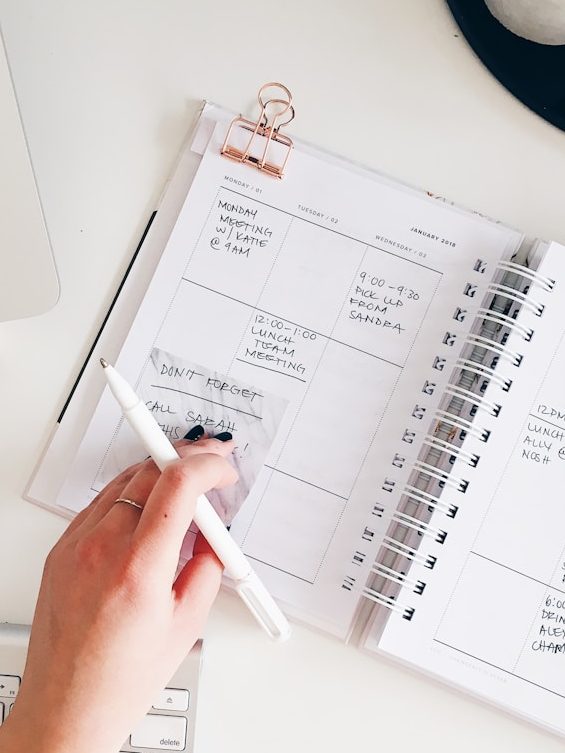 JANUARY 2018
MONDAY / 01
TUESDAY / 02
WEDNESDAY / 03
MONDAY
MEETING
W/ KATIE
@ 9AM
9:00-9:30
PICK UP
FROM
SANDRA
12:00-1:00
LUNCH
TEAM
MEETING
DON'T FORGET
CALL SARAH
!
12PM
LUNCH
ALLY @
NOSH
6:00
delete